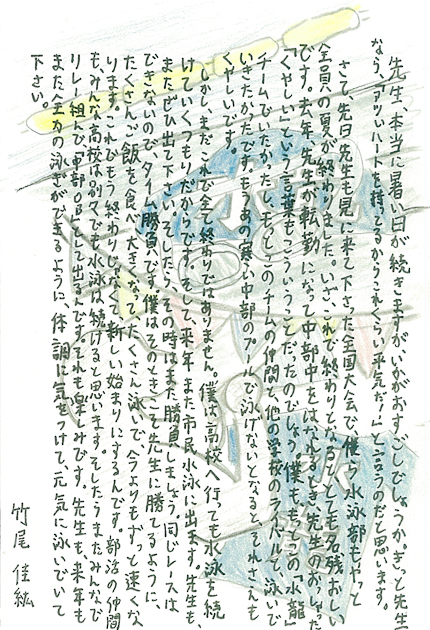 先生、本当に暑い日が続きますがいかがおすごしでしょうか。きっと先生
なら、「アツいハートを持ってるからこれくらい平気だ！」と言うのだと思います。
さて、先日先生も見に来て下さった全国大会で、僕ら水泳部もやっと
全員の夏が終わりました。いざ、これで終わりとなるととても名残おしい
です。去年、先生が転勤になって中部中をはなれるとき、先生のおしゃった
「くやしい」という言葉もこういうことだったのでしょう。僕も、もっとこの「水龍」
チームでいたかったし、もっとこのチームの仲間と、他の学校のライバルと、泳いで
いきたかったです。もうあの寒い中部のプールで泳げないとなると、それさえも
くやしいです。
しかし、まだこれで全て終わりではありません。僕は高校へ行っても水泳を続
けていくつもりだからです。そして、来年また市民水泳に出ます。先生も、
またぜひ出て下さい。そして、その時はまた勝負しましょう。同じレースは
できないのでタイム勝負です。僕はそのときこそ先生に勝てるように、
たくさんご飯を食べ大きくなって、たくさん泳いで、今よりもずっと速くな
ります。これでもう終わりじゃなくて新しい始まりにするんです。部活の仲間
もみんな高校は別々でも水泳は続けると思います。そしたらまたみんなで
リレー組んで中部OBとして出るんです。それも楽しみです。先生も来年も
また全力の泳ぎができるように、体調に気をつけて、元気に泳いでいて
下さい。
竹尾 佳紘